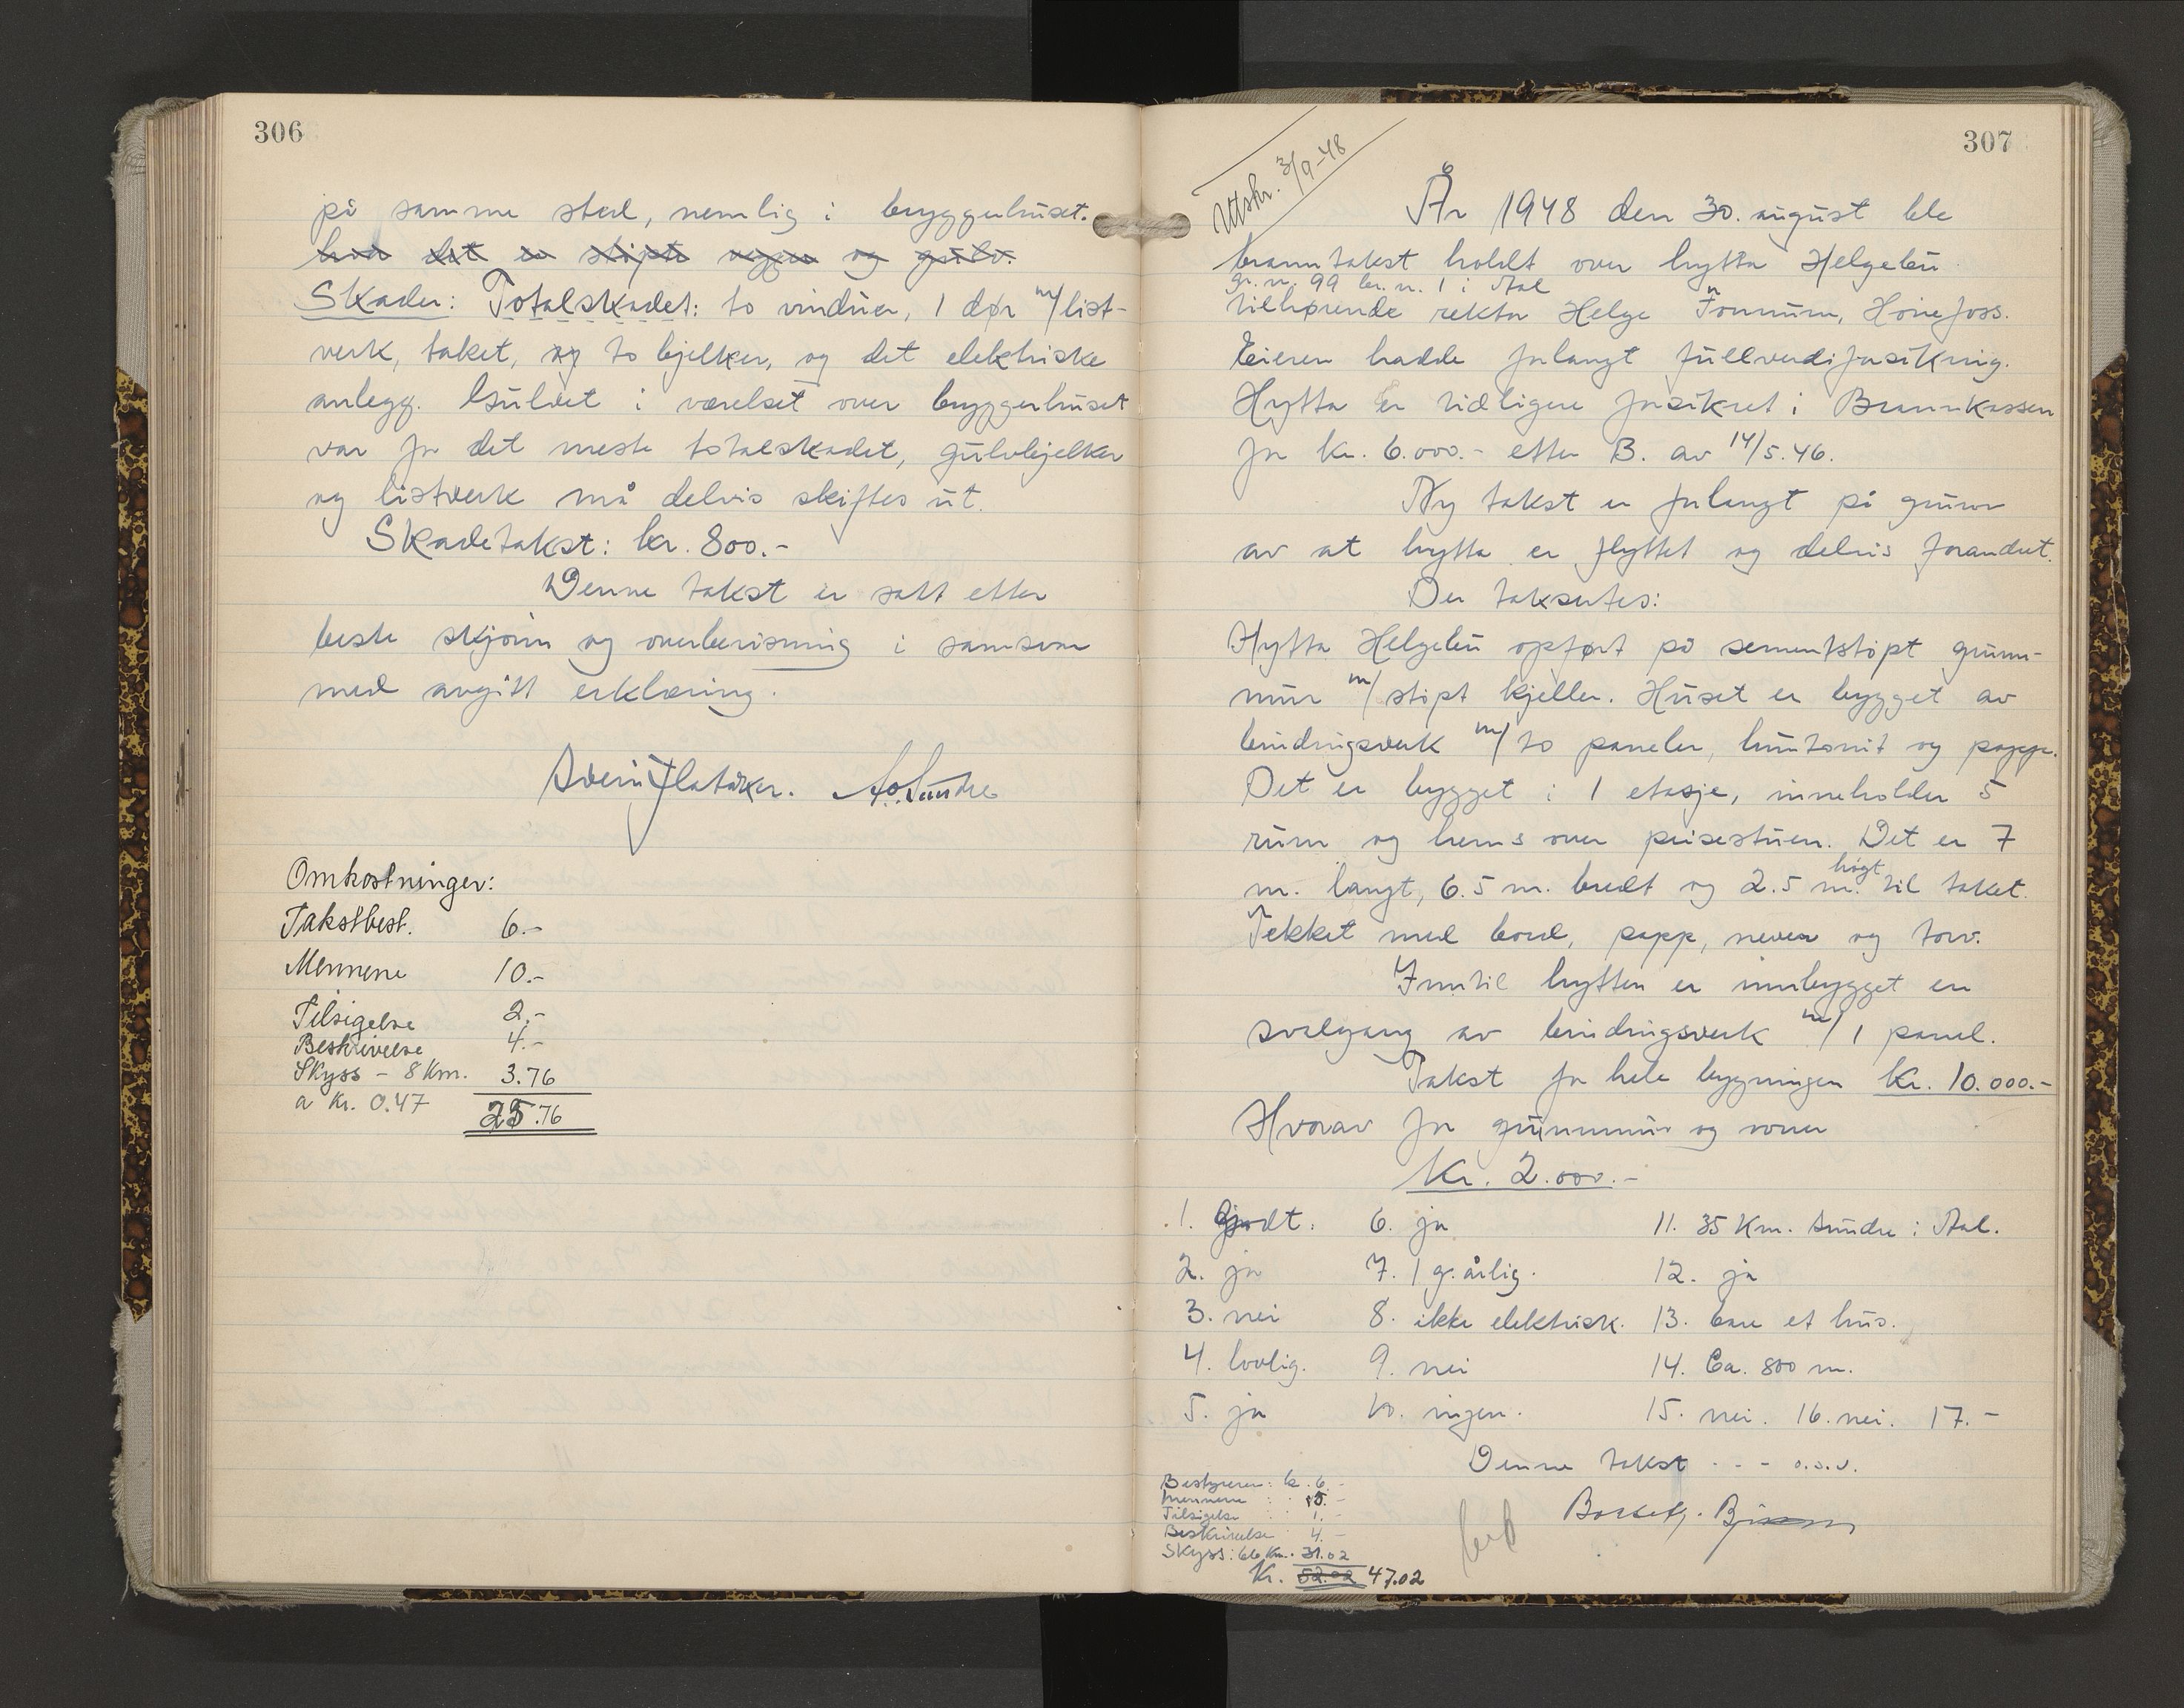 306
på samme sted, nemlig i bryggerhuset.
hvor det er støpte vegger og gulv.
Skader: Totalskadet: to vinduer, 1 dør m/list-
verk, taket, og to bjelker, og det elektriske
anlegg. Gulvet i værelset over bryggerhuset
var for det meste totalskadet, gulvbjelker
og listverk må delvis skiftes ut.
Skadetakst: kr. 800.-
Denne takst er satt etter
beste skjønn og overbevisning i samsvar
med avgitt erklæring.
Svein Flatåker. A.O. Sundre
Omkostninger:
Takstbest. 6.-
Mennene 10.-
Tilsigelse 2.-
Beskrivelse 4.-
Skyss - 8 Km. 3.76
a kr. 0.47
25.76
307
Utskr. 3/9-48
6
År 1948 den 30. august ble
branntakst holdt over hytta Helgebu
gr. n. 99 br. n. 1 i Aal
tilhørende rektor Helge Fonnum, Hønefoss.
Eieren hadde forlangt fullverdiforsikring.
Hytta er tidligere forsikret i Brannkassen
for kr. 6.000.- etter B. av 14/5.46.
Ny takst er forlangt på grunn
av at hytta er flyttet og delvis forandret.
Der taksertes:
Hytta Helgebu opført på sementstøpt grunn-
mur m/ støpt kjeller. Huset er bygget av
bindingsverk m/ to paneler, huntonit og papp.
Det er bygget i 1 etasje, inneholder 5
rum og hems over peisestuen. Det er 7
m. langt, 6.5 m. bredt og 2.5 m. høgt til taket.
Tekket med bord, papp, never og torv.
Inntil hytten er innbygget en
svalgang av bindingsverk m/ 1 panel.
Takst for hele bygningen kr. 10.000.-
Hvorav for grunnmur og
kr. 2.000.-
1. godt. 6. ja 11. 35 Km. Sundre i Aal.
2. ja 7. 1 g. årlig. 12. ja
3. nei 8. ikke elektrisk. 13. bare et hus.
4. lovlig. 9. nei 14. Ca. 800 m.
5. ja 10. ingen. 15. nei. 16. nei. 17. -
Denne takst - - - o.s.v.
Bestyreren: kr. 6.-
Mennene : 5.-
Tilsigelse : 1.-
Beskrivelse 4.-
Skyss: 66 Km. 31.02
Kr. 52.02 47.02